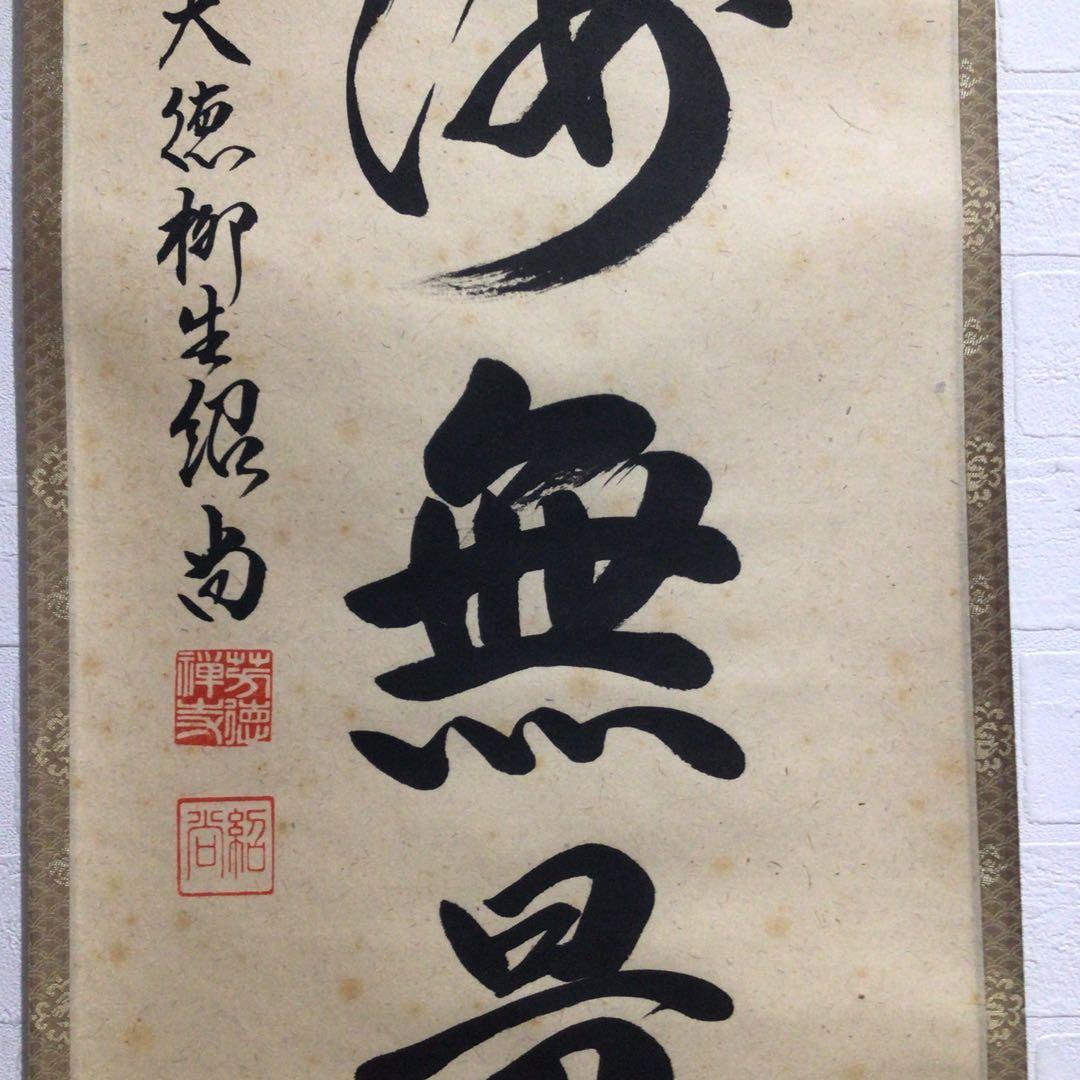 海無量
大徳柳生紹尚
芳徳禅寺
紹尚